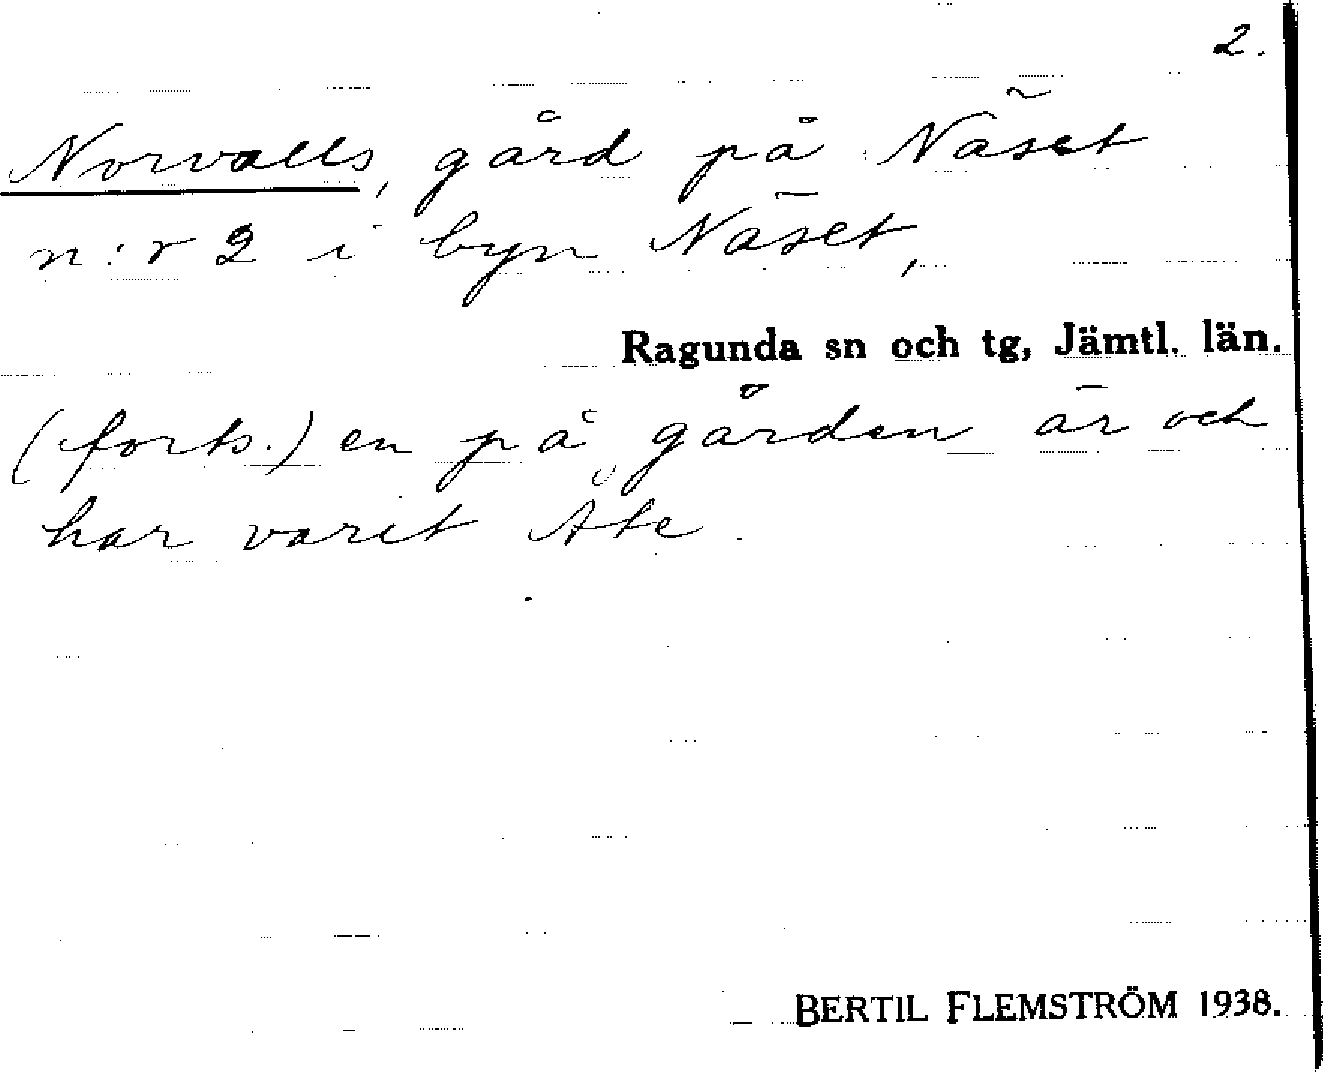 2.
Norvalls, gård på Näset
n:r 2 i byn Näset,
Ragunda sn och tg, Jämtl. län.
(forts.) en på gården är och
har varit Åke.
BERTIL FLEMSTRÖM 1938.